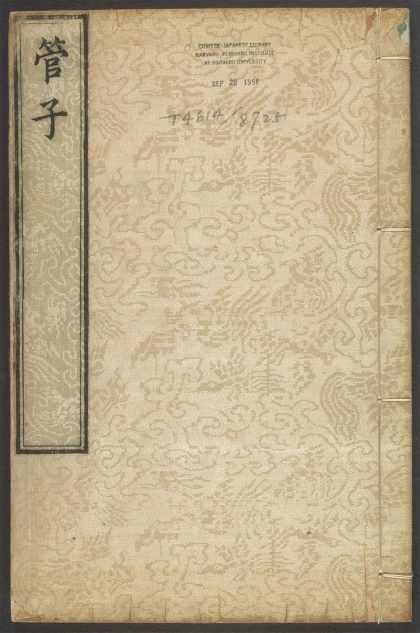 管子
CHINESE-JAPANESE LIBRARY
HARVARD-YENCHING INSTITUTE
AT HARVARD UNIVERSITY
SEP 25 1956
T4614/8728